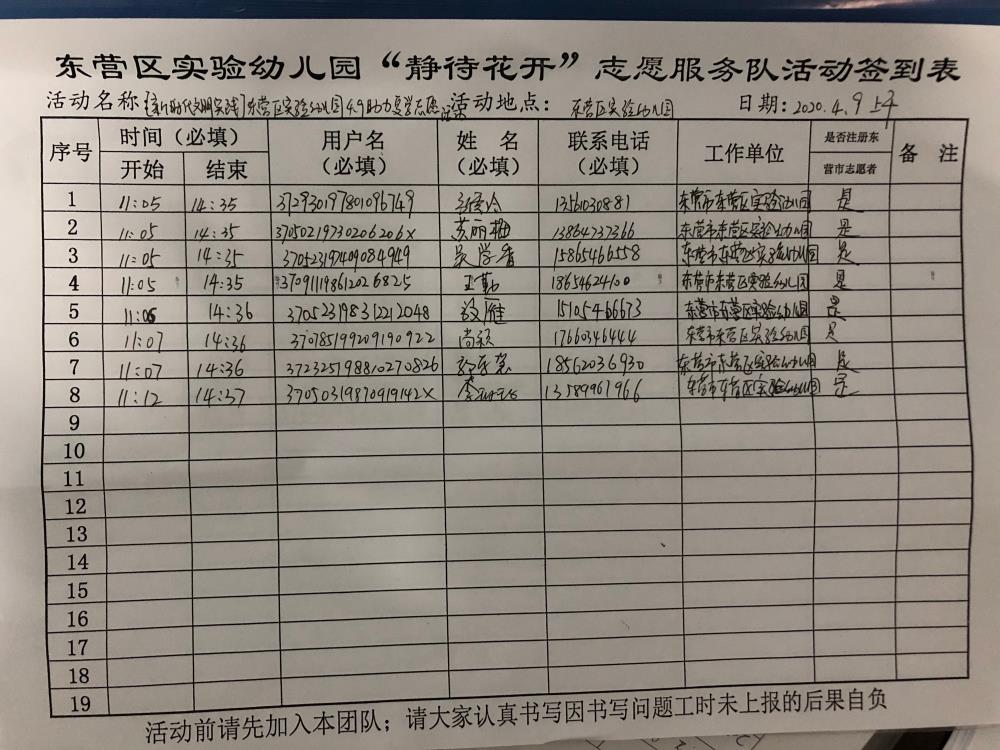 东营区实验幼儿园“静待花开”志愿服务队活动签到表
活动名称：【新时代文明实践】东营区实验幼儿园4.9助力复学志愿活动 活动地点： 东营区实验幼儿园 日期：2020.4.9上午
序号 时间（必填） 用户名（必填） 姓 名（必填） 联系电话（必填） 工作单位 是否注册东营市志愿者 备 注
开始 结束
1 11:05 14:35 372930197801096749 13561030881 东营市东营区实验幼儿园 是
2 11:05 14:35 37050219730206206X 黄丽梅 13864237366 东营市东营区实验幼儿园 是
3 11:05 14:35 370523197409084949 吴学香 15865466558 东营市东营区实验幼儿园 是
4 11:05 14:35 370911198612026825 王勤 18654624100 东营市东营区实验幼儿园 是
5 11:06 14:36 370523198312212048 段雁 15105466673 东营市东营区实验幼儿园 是
6 11:07 14:36 370785199209190922 尚颖 17660346444 东营市东营区实验幼儿园 是
7 11:07 14:36 372325198810270826 18562036930 东营市东营区实验幼儿园 是
8 11:12 14:37 37050319870919142X 李 13589961966 东营市东营区实验幼儿园 是
9
10
11
12
13
14
15
16
17
18
19
活动前请先加入本团队；请大家认真书写因书写问题工时未上报的后果自负